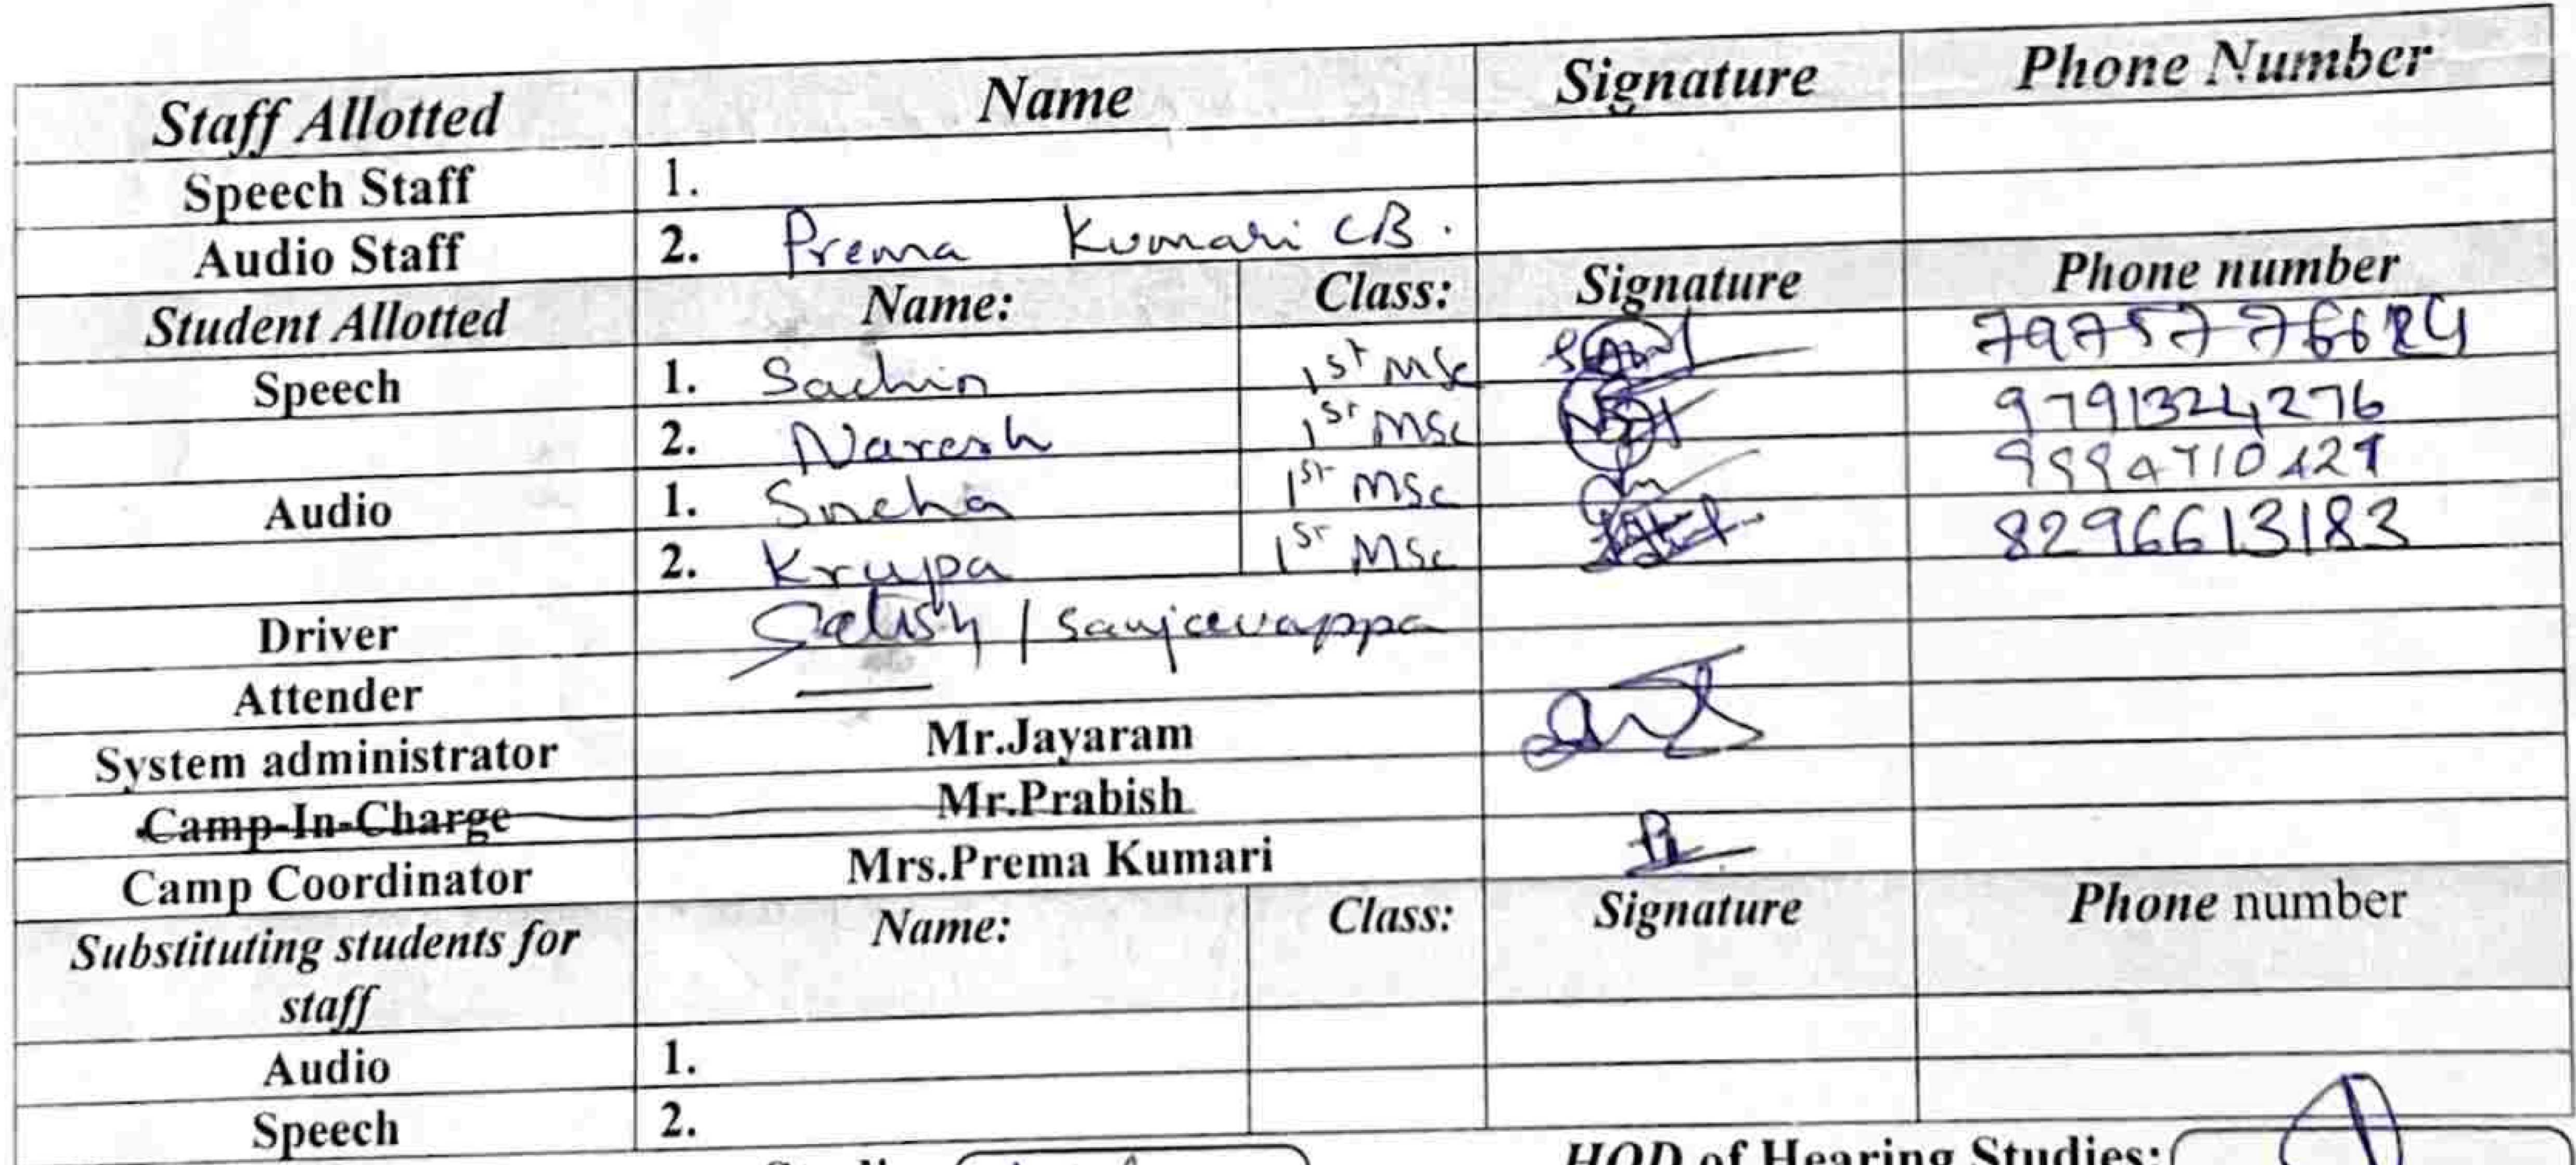 Staff Allotted Name Signature Phone Number
Speech Staff 1.
Audio Staff 2. Prema Kumari CB.
Student Allotted Name: Class: Signature Phone number
Speech 1. Sachin 1st MSc
2. Naresh 1st MSc 9791324276
Audio 1. Sneha 1st MSc
2. Krupa 1st MSc 8296613183
Driver Satish / Sanjeevappa
Attender
System administrator Mr.Jayaram
Camp-In-Charge Mr.Prabish
Camp Coordinator Mrs.Prema Kumari
Substituting students for Name: Class: Signature Phone number
staff
Audio 1.
Speech 2.
HOD of Hearing Studies: